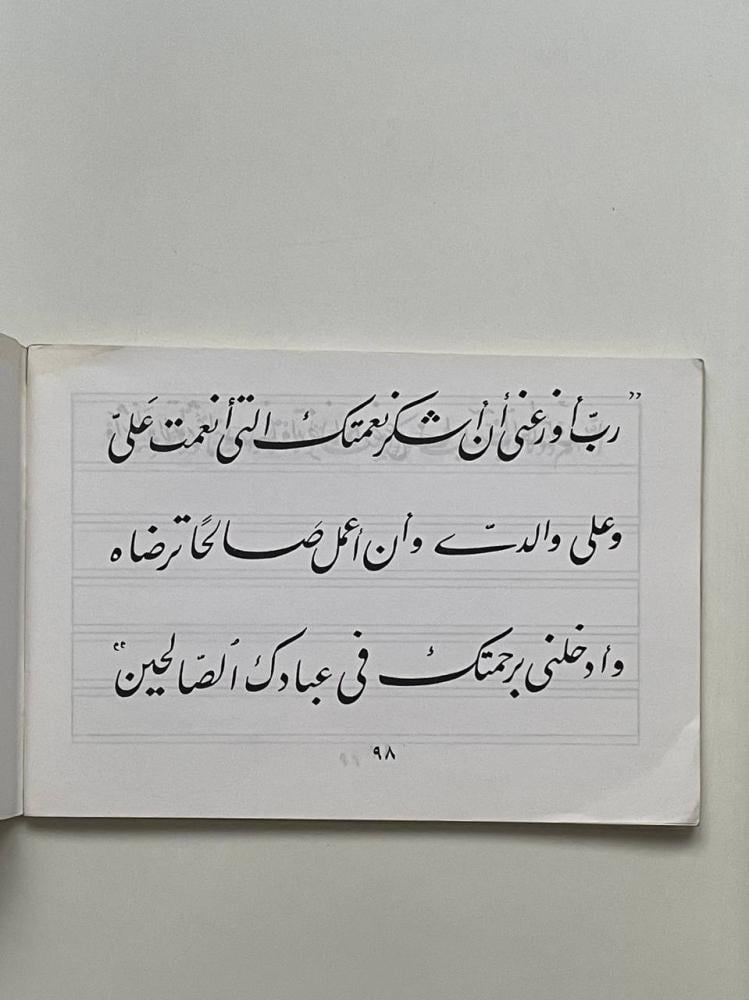 " ربّ أوزعنى أن أشكر نعمتك التى أنعمت عَلىّ
وعلى والدىّ وأن أعمل صَالحًا ترضاه
وأدخلنى برحمتك فى عبادك ٱلصّالحين "
٩٨